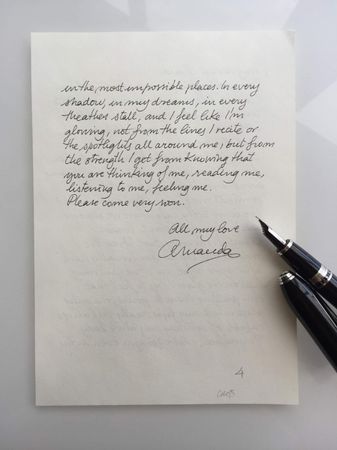 in the most impossible places. In every
shadow, in my dreams, in every
theather stall, and I feel like I'm
glowing, not from the lines I recite or
the spotlights all around me, but from
the strength I get from knowing that
you are thinking of me, reading me,
listening to me, feeling me.
Please come very soon.
All my love
Amanda
4